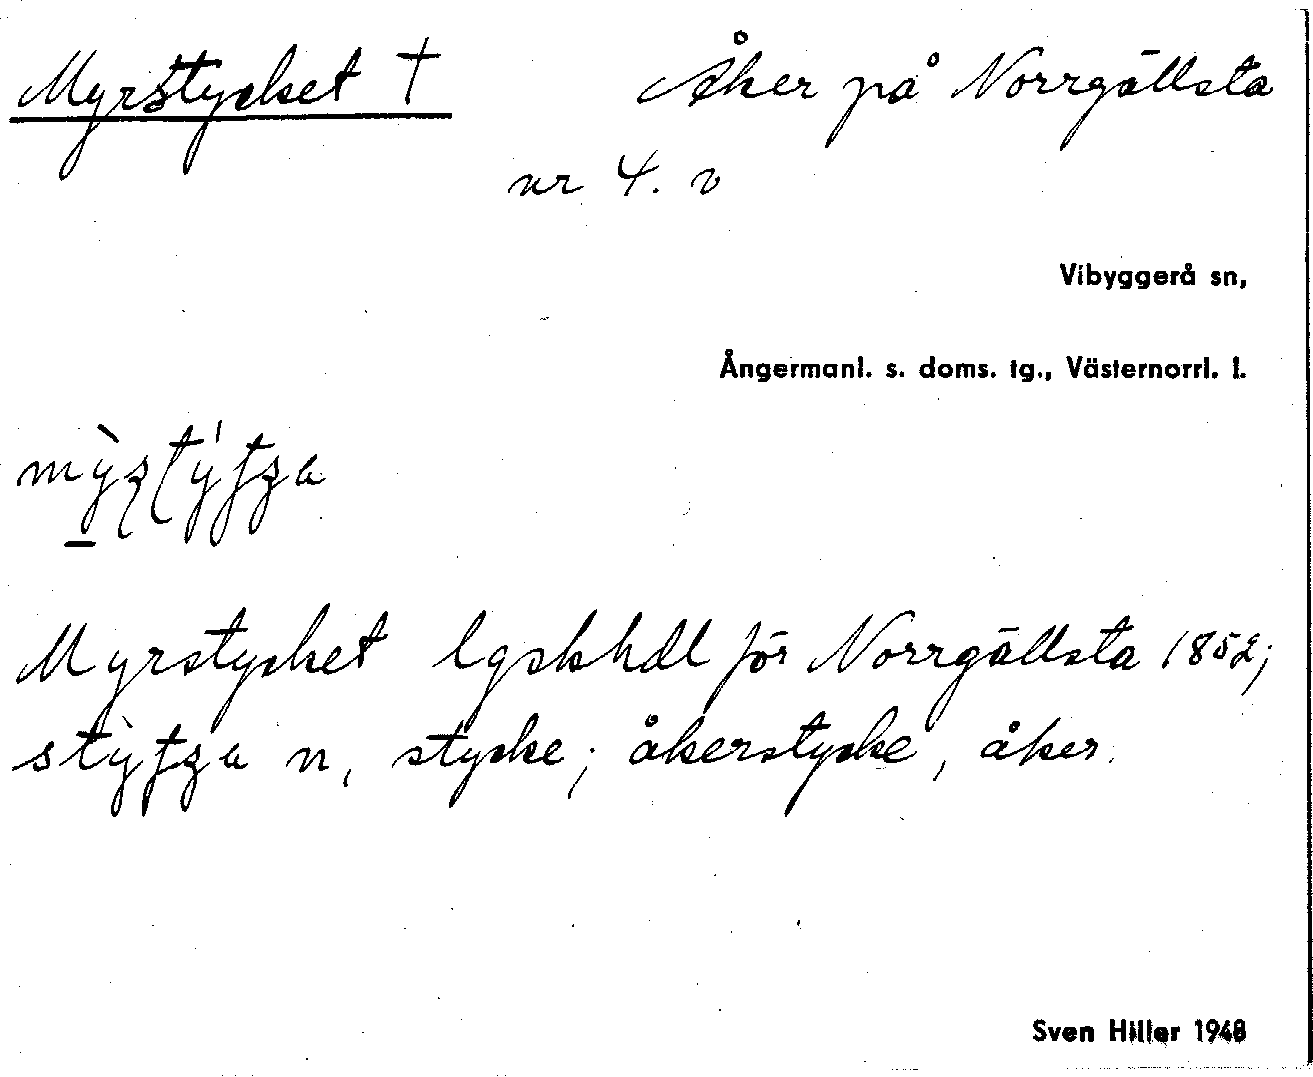 Myrstycket † Åker på Norrgällsta
nr 4. v
Vibyggerå sn,
Ångermanl. s. doms. tg., Västernorrl. l.
Myrstycket lgskhdl för Norrgällsta 1852;
n, stycke; åkerstycke, åker.
Sven Hiller 1948